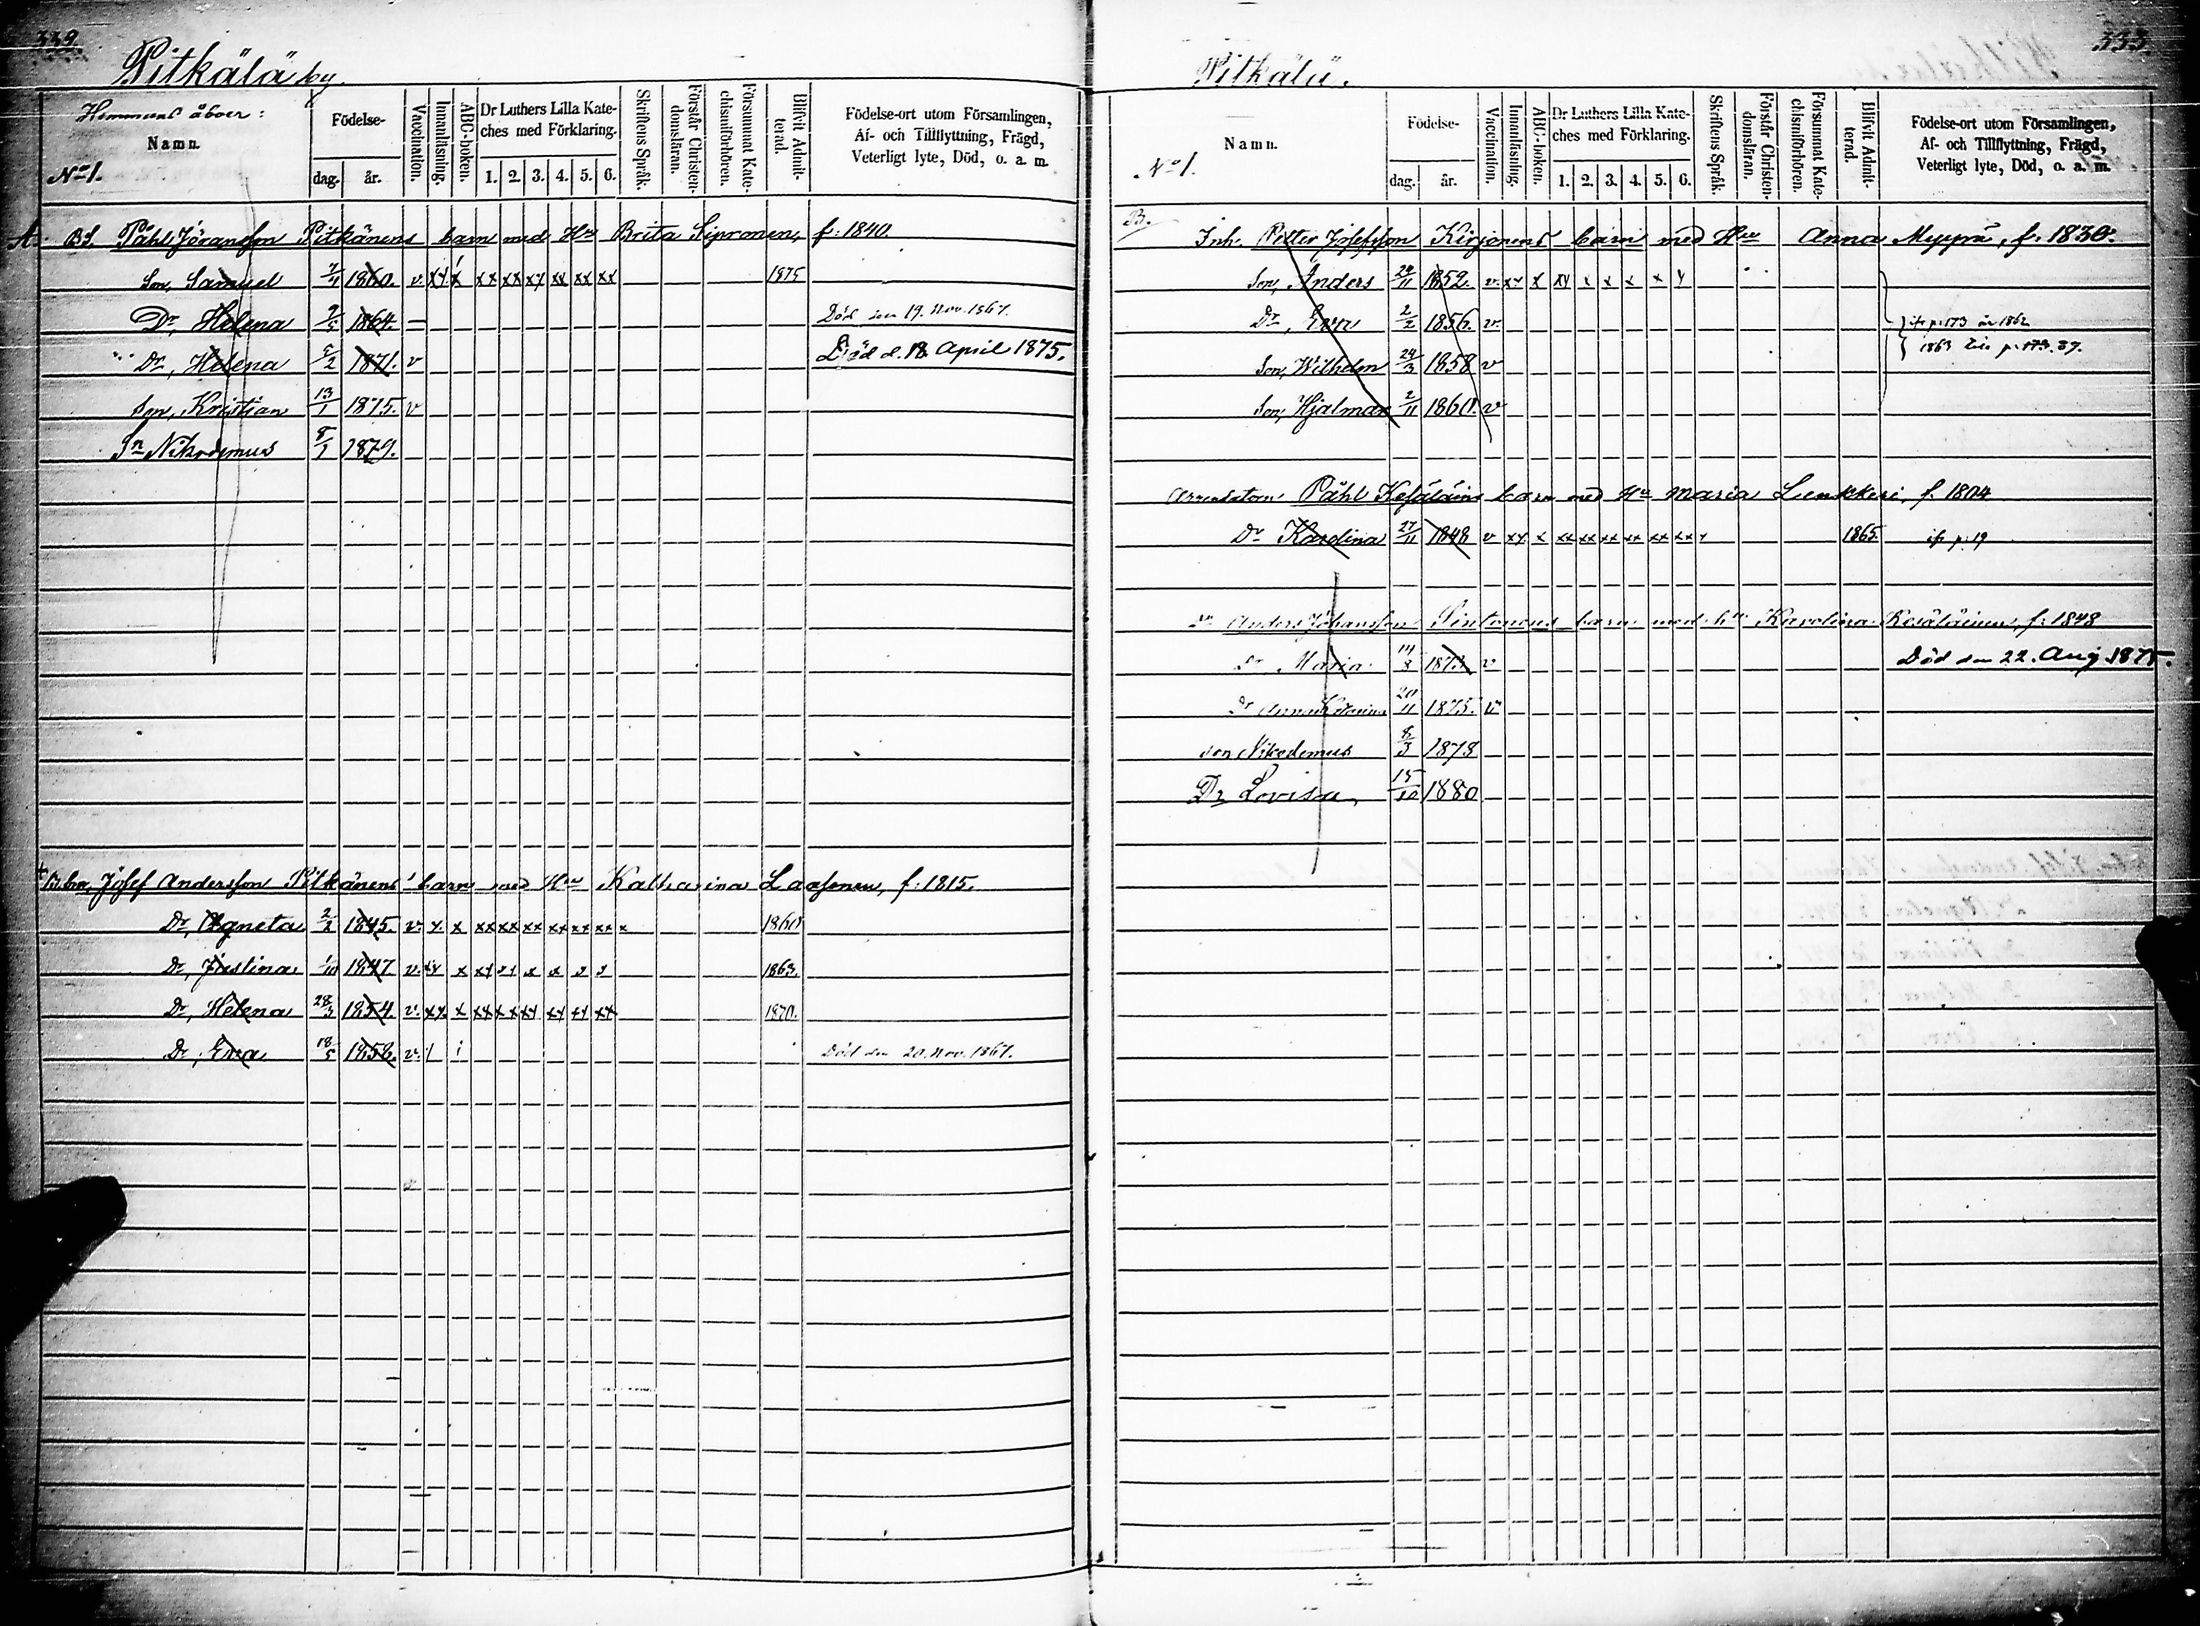 339.
Pitkälä by.
Hemmans åboer:
Namn.
No 1.
Födelse-
dag. år.
Vaccination.
Innanläsning.
ABC-boken.
Dr Luthers Lilla Kate-
ches med Förklaring.
1. 2. 3. 4. 5. 6.
Skriftens Språk.
Förstår Christen-
domsläran.
Försummat Kate-
chismiförhören.
Blifvit Admit-
terad.
Födelse-ort utom Församlingen,
Af- och Tillflyttning, Frägd,
Veterligt lyte, Död, o. a. m.
A. BS. Påhl Jöransson Pitkänens barn med Hu Brita Sipronen, f: 1840.
Son, Samuel 1860. v xx x xx xx xx xx xx xx 1875
Dr, Helena 9/5 1864. — Död den 19. Nov. 1867.
Dr, Helena 5/2 1871. v Död d. 18. April 1875.
Son, Kristian 13/1 1875. v
Sn Nikodemus 8/1 1879.
B. bror, Josef Andersson Pitkänens barn med Hu Katharina Laasonen, f: 1815.
Dr, Agneta 2/2 1845. v. x x xx xx xx xx xx xx x 1860
Dr, Justina 1/10 1847 v. xx x xx 1863.
Dr, Helena 28/3 1854. v. xx x xx xx xx xx xx xx 1870.
Dr, Eva 18/5 1858. v. Död den 20. Nov. 1867.
333
Pitkälä.
No 1.
Namn.
Födelse-
dag. år.
Vaccination.
Innanläsning.
ABC-boken.
Dr Luthers Lilla Kate-
ches med Förklaring.
1. 2. 3. 4. 5. 6.
Skriftens Språk.
Förstår Christen-
domsläran.
Försummat Kate-
chismiförhören.
Blifvit Admit-
terad.
Födelse-ort utom Församlingen,
Af- och Tillflyttning, Frägd,
Veterligt lyte, Död, o. a. m.
B. Inh. Petter Josefsson Kirjonens barn med Hu Anna Myyrä, f: 1830.
Son, Anders 24/11 1852. v. xx x xx x x x x x
Dr, Eva 2/2 1856. v. p: 173 år 1862
Son, Wilhelm 24/3 1858 v 1863 p: 173. 37.
Son, Hjalmar 2/11 1860. v
Arrendatorn Påhl Kesäläins barn med Hu Maria f. 1804
Dr Karolina 27/11 1848 v xx x xx xx xx xx xx xx 1865. p: 19
Anders Johansson Sintonens barn med hu Karolina Kesäläinen, f: 1848
Dr Maria 14/8 1873. v Död den 22. Aug 1875.
Dr Anna 20/11 1875. v
son Nikodemus 8/3 1878
Dr Lovisa 15/10 1880